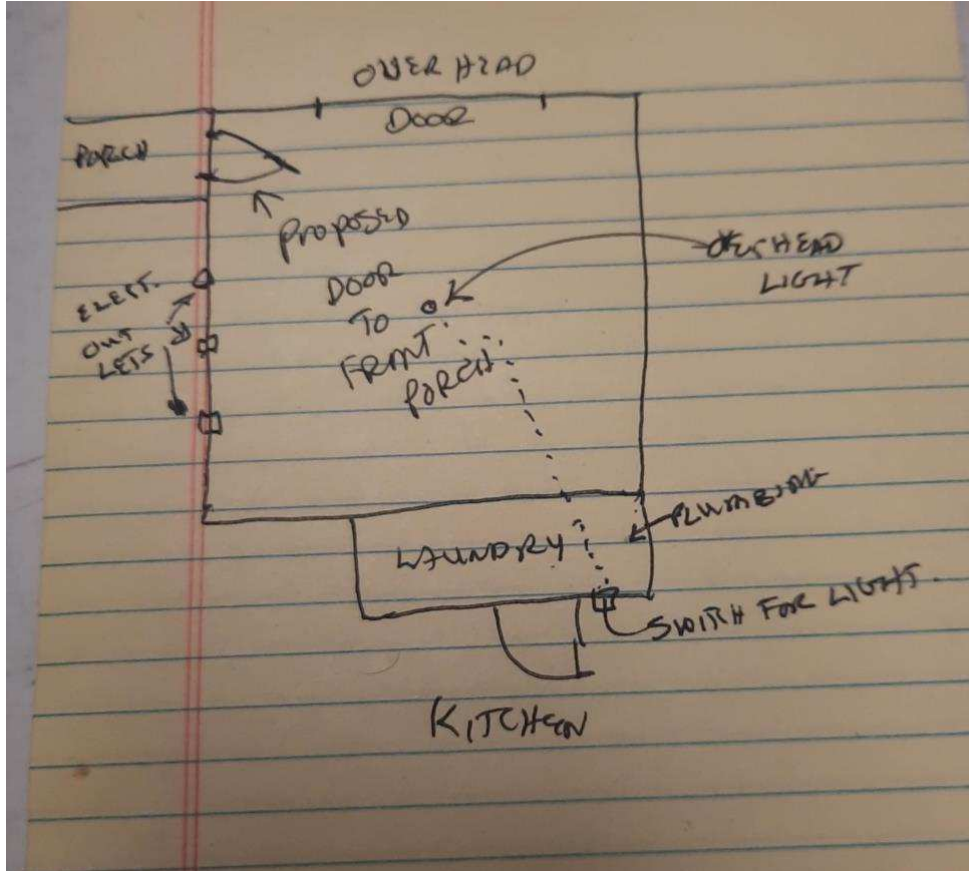 OVER HEAD
DOOR
PORCH
PROPOSED
DOOR
TO
FRONT
PORCH
OVERHEAD
LIGHT
ELECT.
OUT
LETS
LAUNDRY
PLUMBING
SWITCH FOR LIGHT.
KITCHEN